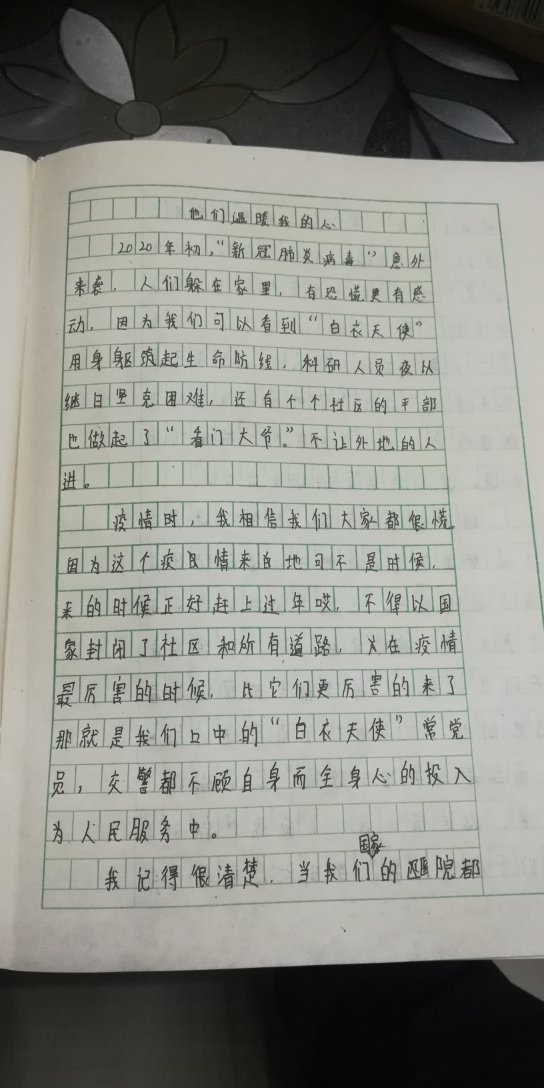 他们温暖我的心
2020年初，“新冠肺炎病毒”意外
来袭，人们躲在家里，有恐慌更有感
动，因为我们可以看到“白衣天使”
用身躯筑起生命防线，科研人员夜以
继日坚克困难，还有个个社区的干部
也做起了“看门大爷。”不让外地的人
进。
疫情时，我相信我们大家都很慌，
因为这个疫情来的地可不是时候，
来的时候正好赶上过年哎，不得以国
家封闭了社区和所有道路，在疫情
最厉害的时候，比它们更厉害的来了
那就是我们口中的“白衣天使”常党
员，交警都不顾自身而全身心的投入
为人民服务中。
我记得很清楚，当我们国家的医院都